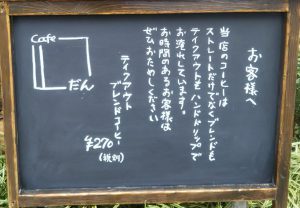 お客様へ
当店のコーヒーは
ストレートだけでなくブレンドも
テイクアウトもハンドドリップで
お淹れしています。
お時間のあるお客様は
ぜひおためしください
テイクアウト
ブレンドコーヒー
¥270
(税別)
Cafe
だん